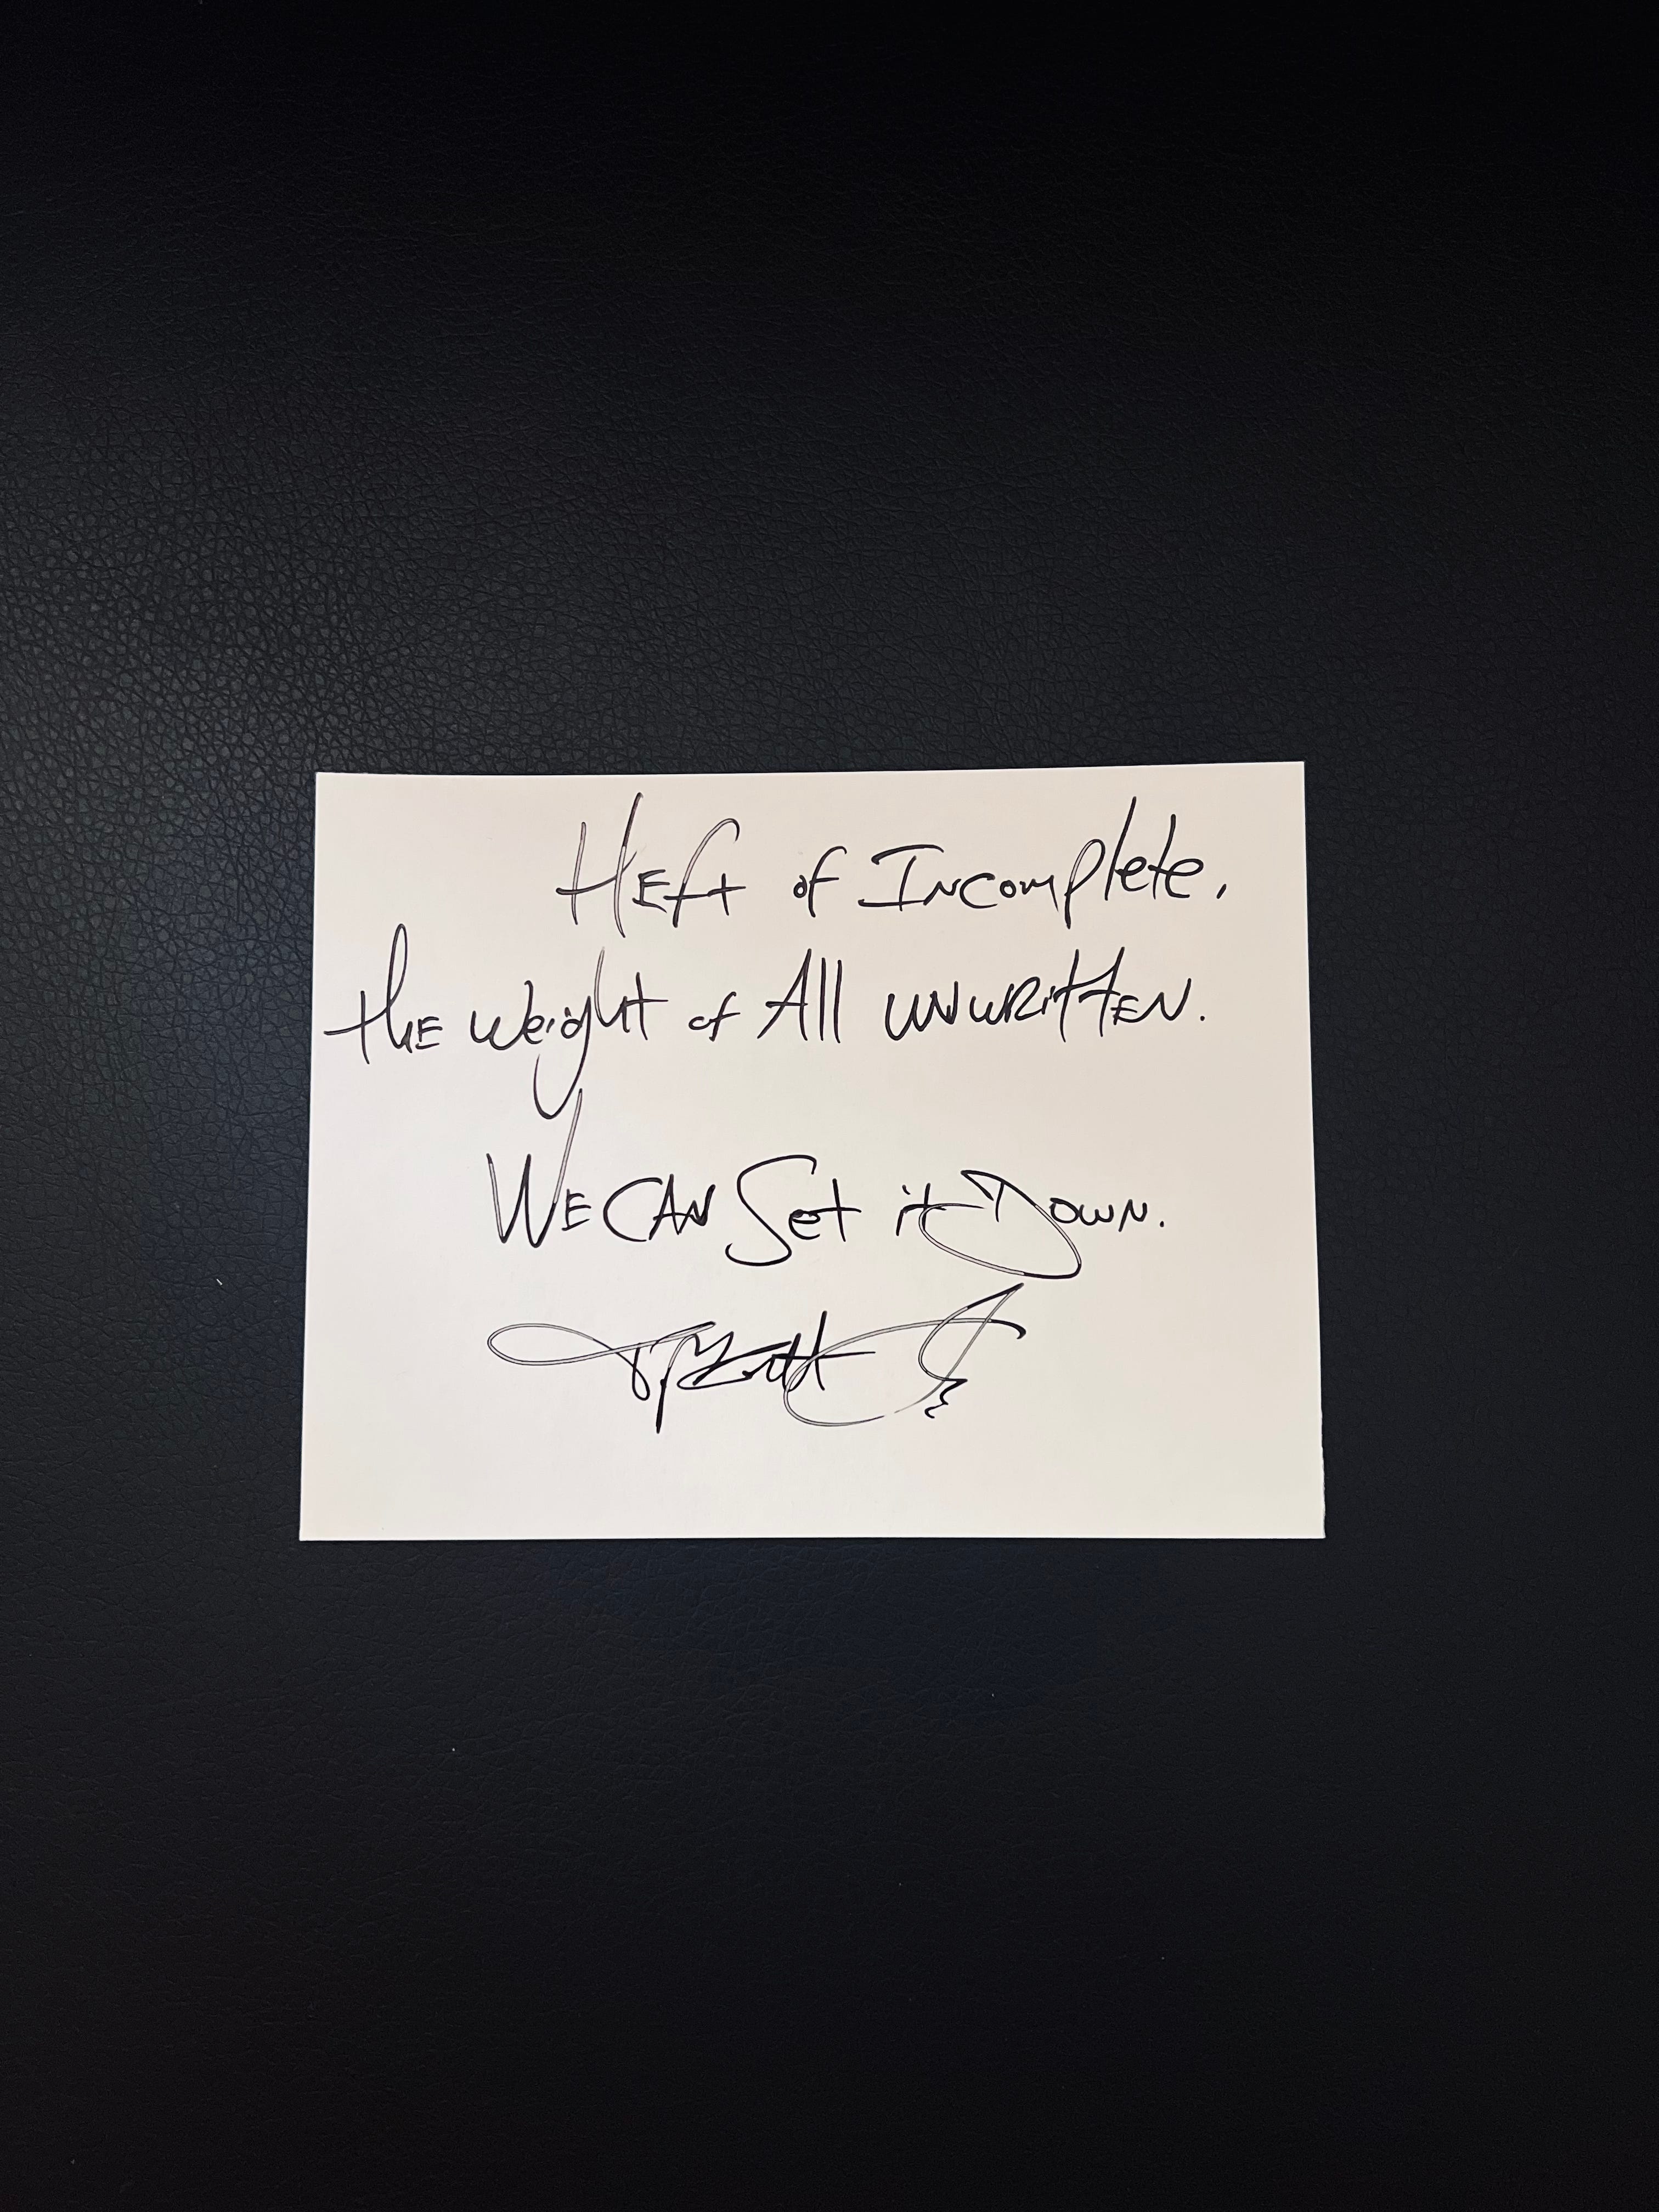 HEft of INcomplete,
the Weight of All UNWRittEN.
WE CAN Set it DOWN.